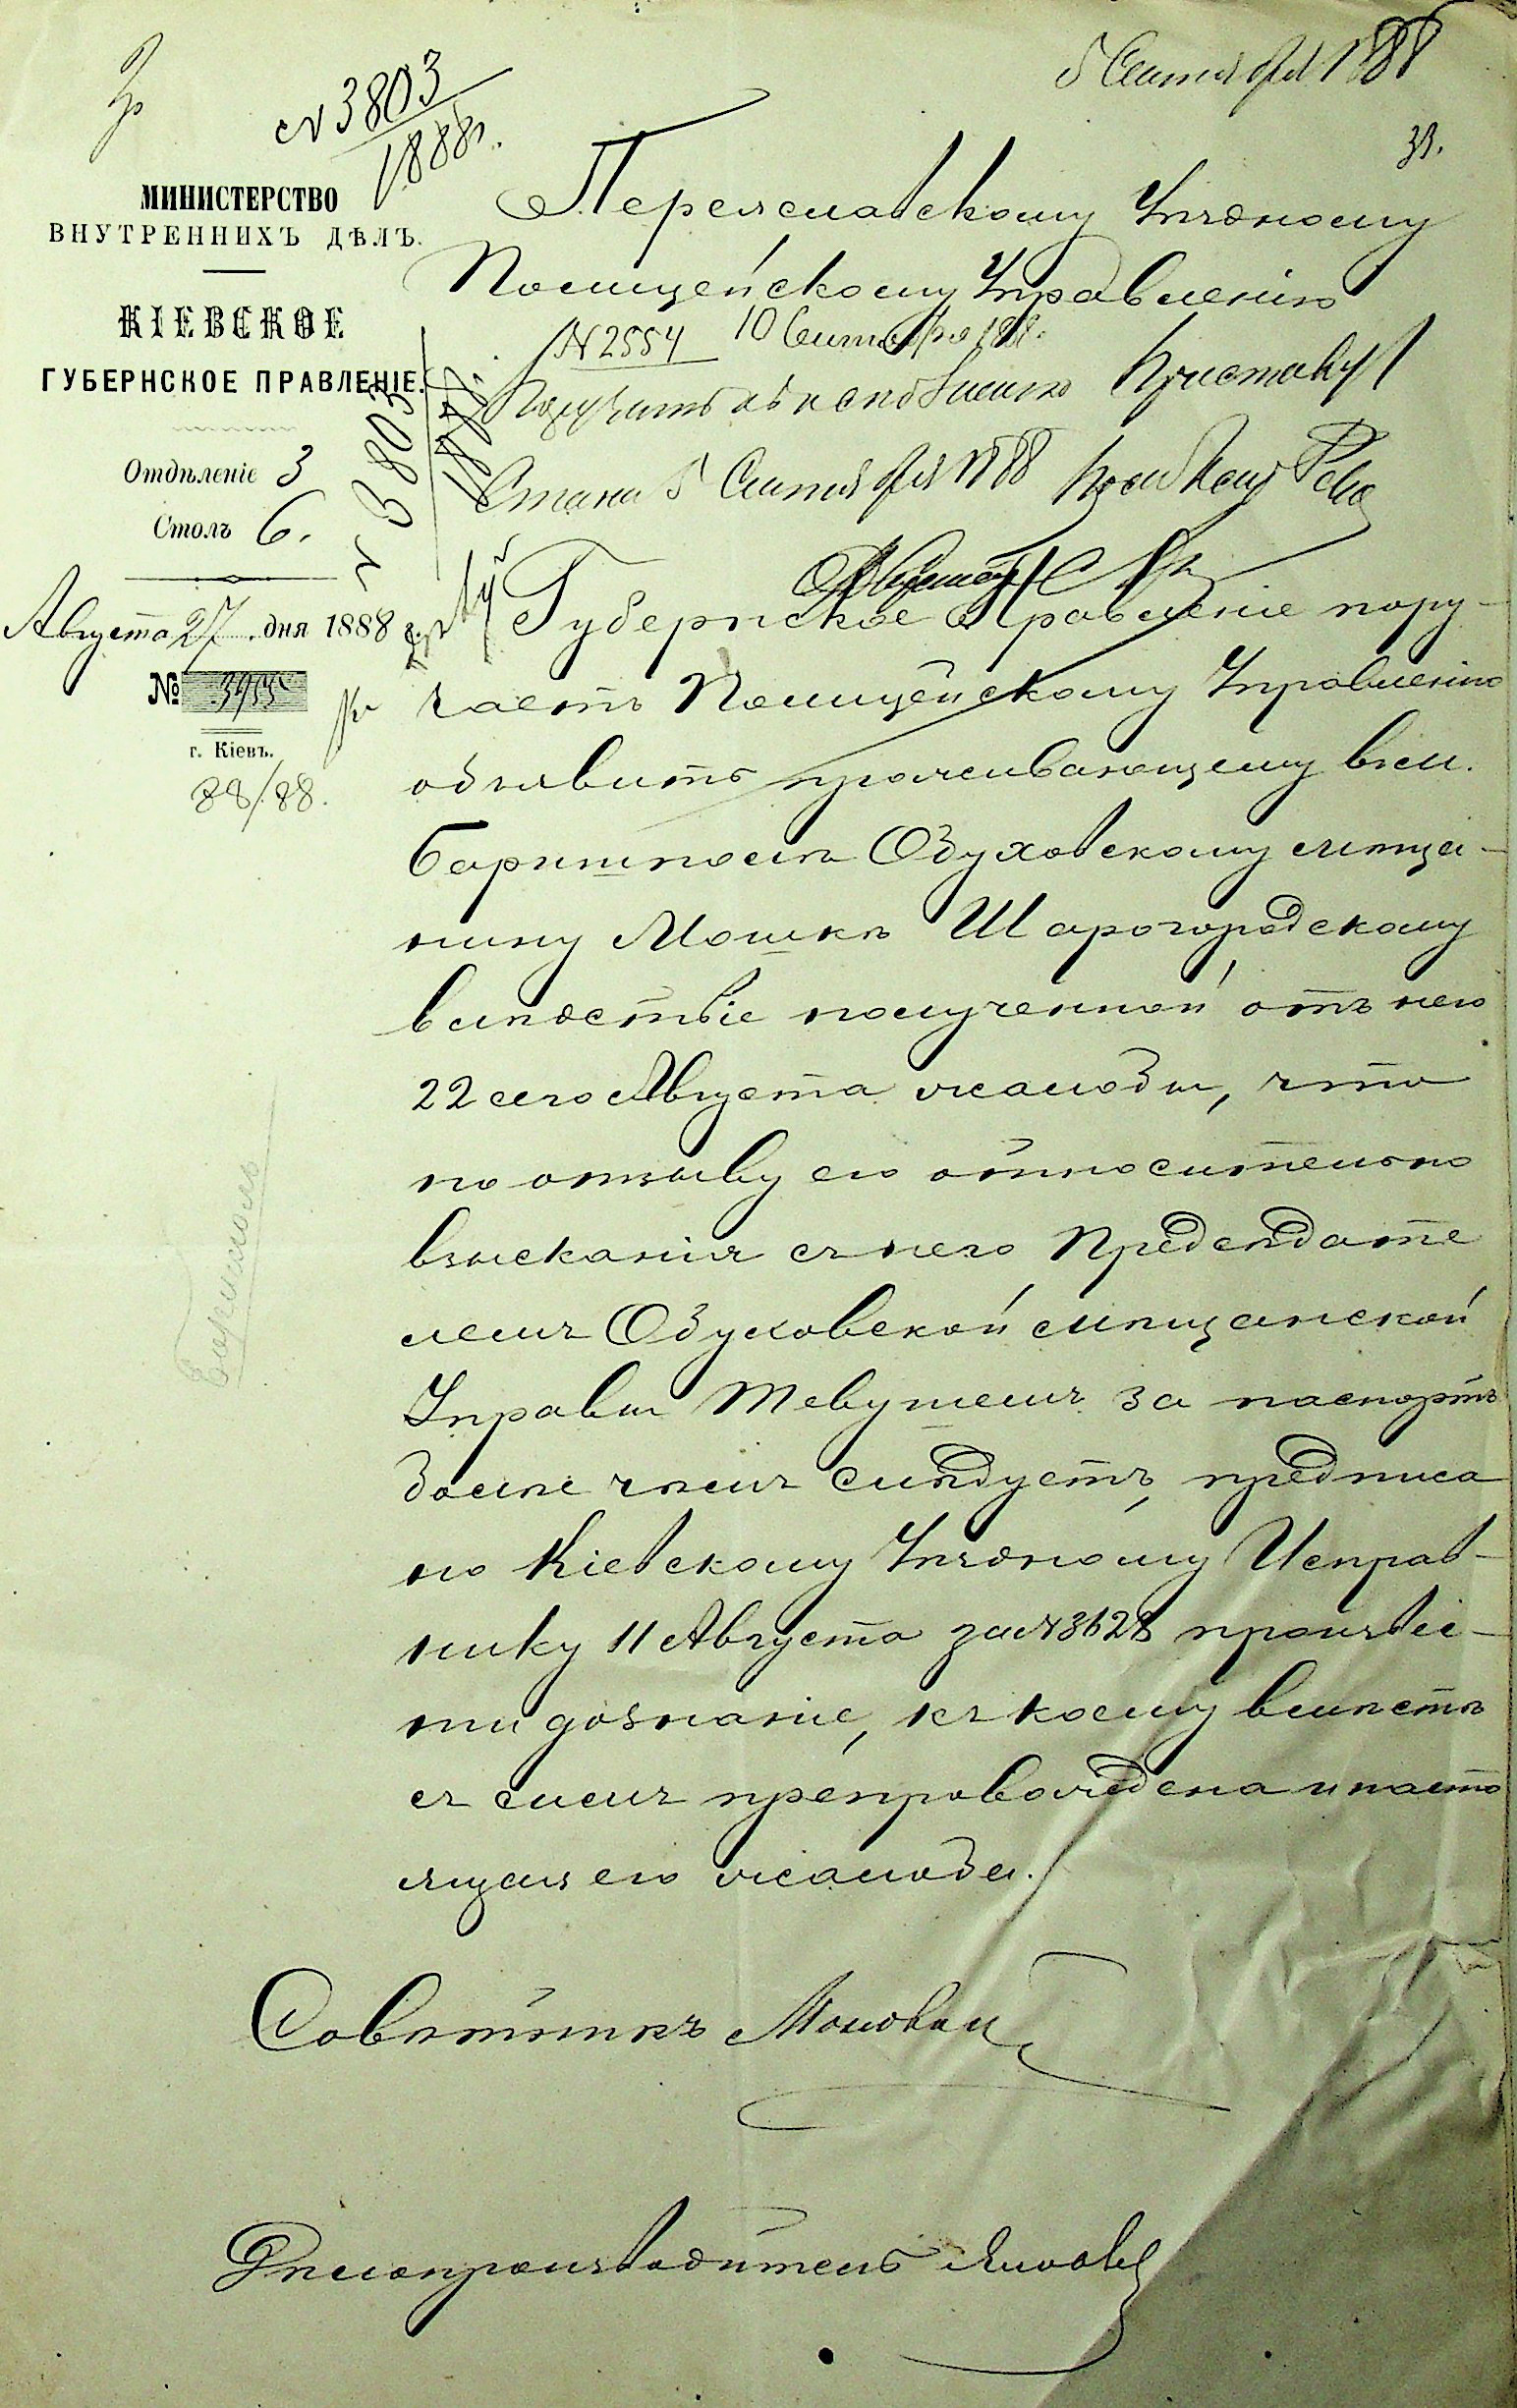 5 Сентября 1888
33.
№ 3803
1888 г.
МИНИСТЕРСТВО
ВНУТРЕННИХЪ ДѢЛЪ.
КІЕВСКОЕ
ГУБЕРНСКОЕ ПРАВЛЕНІЕ.
Отдѣленіе 3
Столъ 6.
Августа 27 дня 1888
№ 3955
г. Кіевъ.
88/88.
№ 3803
1888
Переяславскому Уѣздному
Полицейскому Управленію
№ 2554 10 Сентября 188
къ исполненію Приставу 1
Стана 5 Сентября 1888
Губернское Правленіе пору-
чаетъ Полицейскому Управленію
объявить проживающему въ м.
Боришполѣ Обуховскому мѣща-
нину Мошкѣ Шарогородскому
вслѣдствіе полученной отъ него
22 сего Августа жалобы, что
по отзыву его относительно
взысканія съ него Предсѣдате
лемъ Обуховской мѣщанской
Управы Тевушемъ за паспортъ
болѣе чѣмъ слѣдуетъ, предписа
но Кіевскому Уѣздному Исправ-
нику 11 Августа за № 3628 произвес-
ти дознаніе, къ коему вмѣстѣ
съ симъ препровождена и насто
ящая его жалоба.
Бориполь
Совѣтникъ
Дѣлопроизводитель